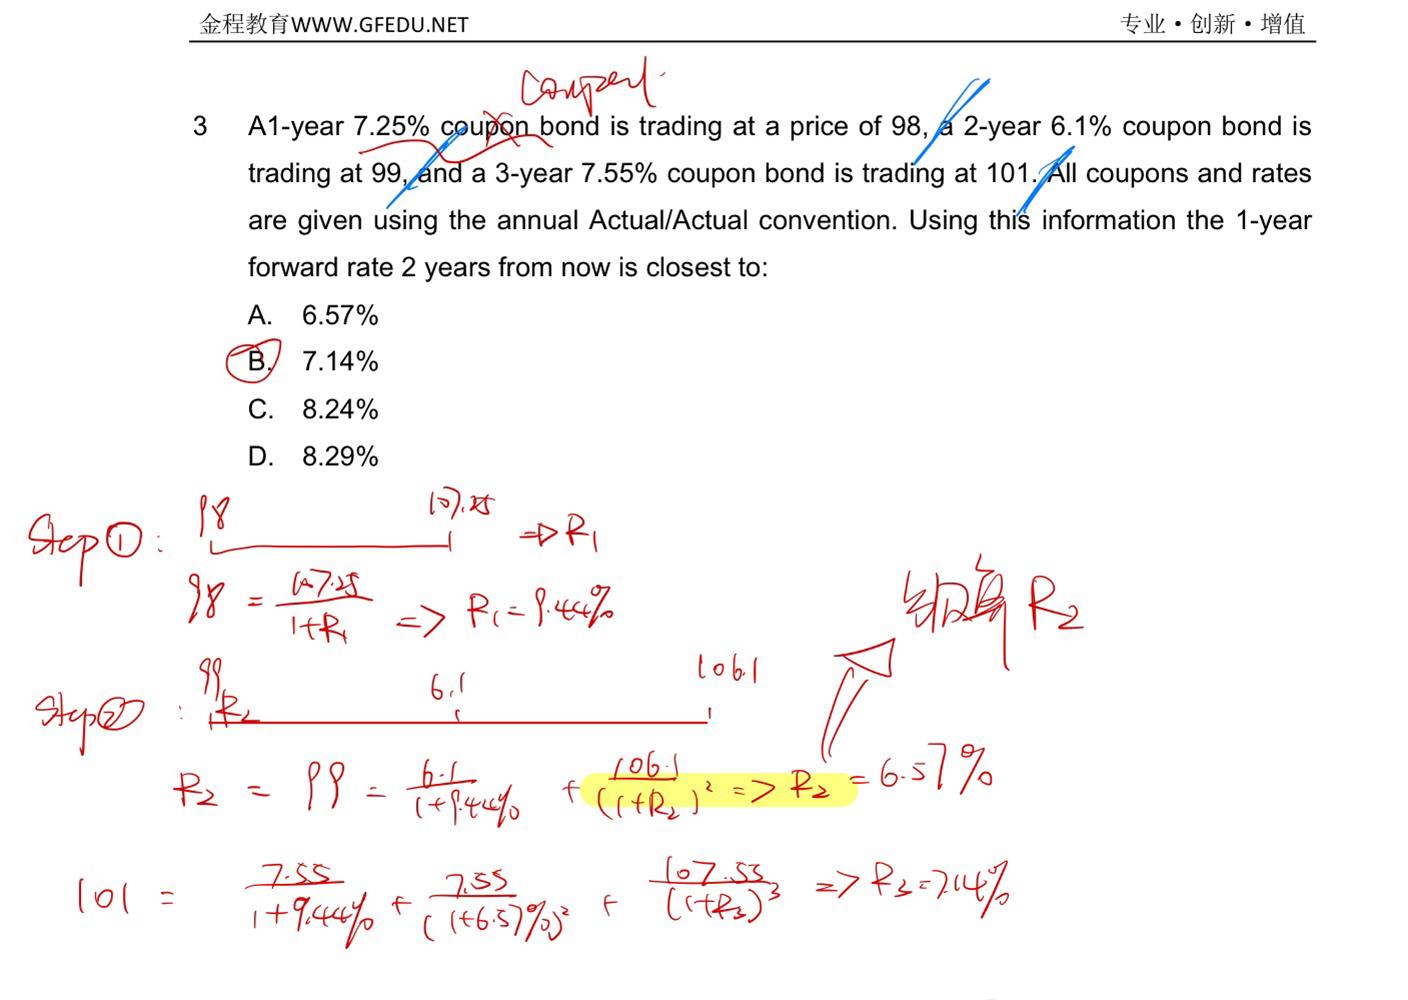 金程教育WWW.GFEDU.NET
专业·创新·增值
coupon
3 A1-year 7.25% coupon bond is trading at a price of 98, a 2-year 6.1% coupon bond is
trading at 99, and a 3-year 7.55% coupon bond is trading at 101. All coupons and rates
are given using the annual Actual/Actual convention. Using this information the 1-year
forward rate 2 years from now is closest to:
A. 6.57%
B. 7.14%
C. 8.24%
D. 8.29%
Step①: 98 107.25 => R1
98 = 107.25/(1+R1) => R1 = 9.44%
R2
Step②: 99 R2 6.1 106.1
R2 = 99 = 6.1/(1+9.44%) + 106.1/(1+R2)² => R2 = 6.57%
101 = 7.55/(1+9.44%) + 7.55/(1+6.57%)² + 107.55/(1+R3)³ => R3=7.14%